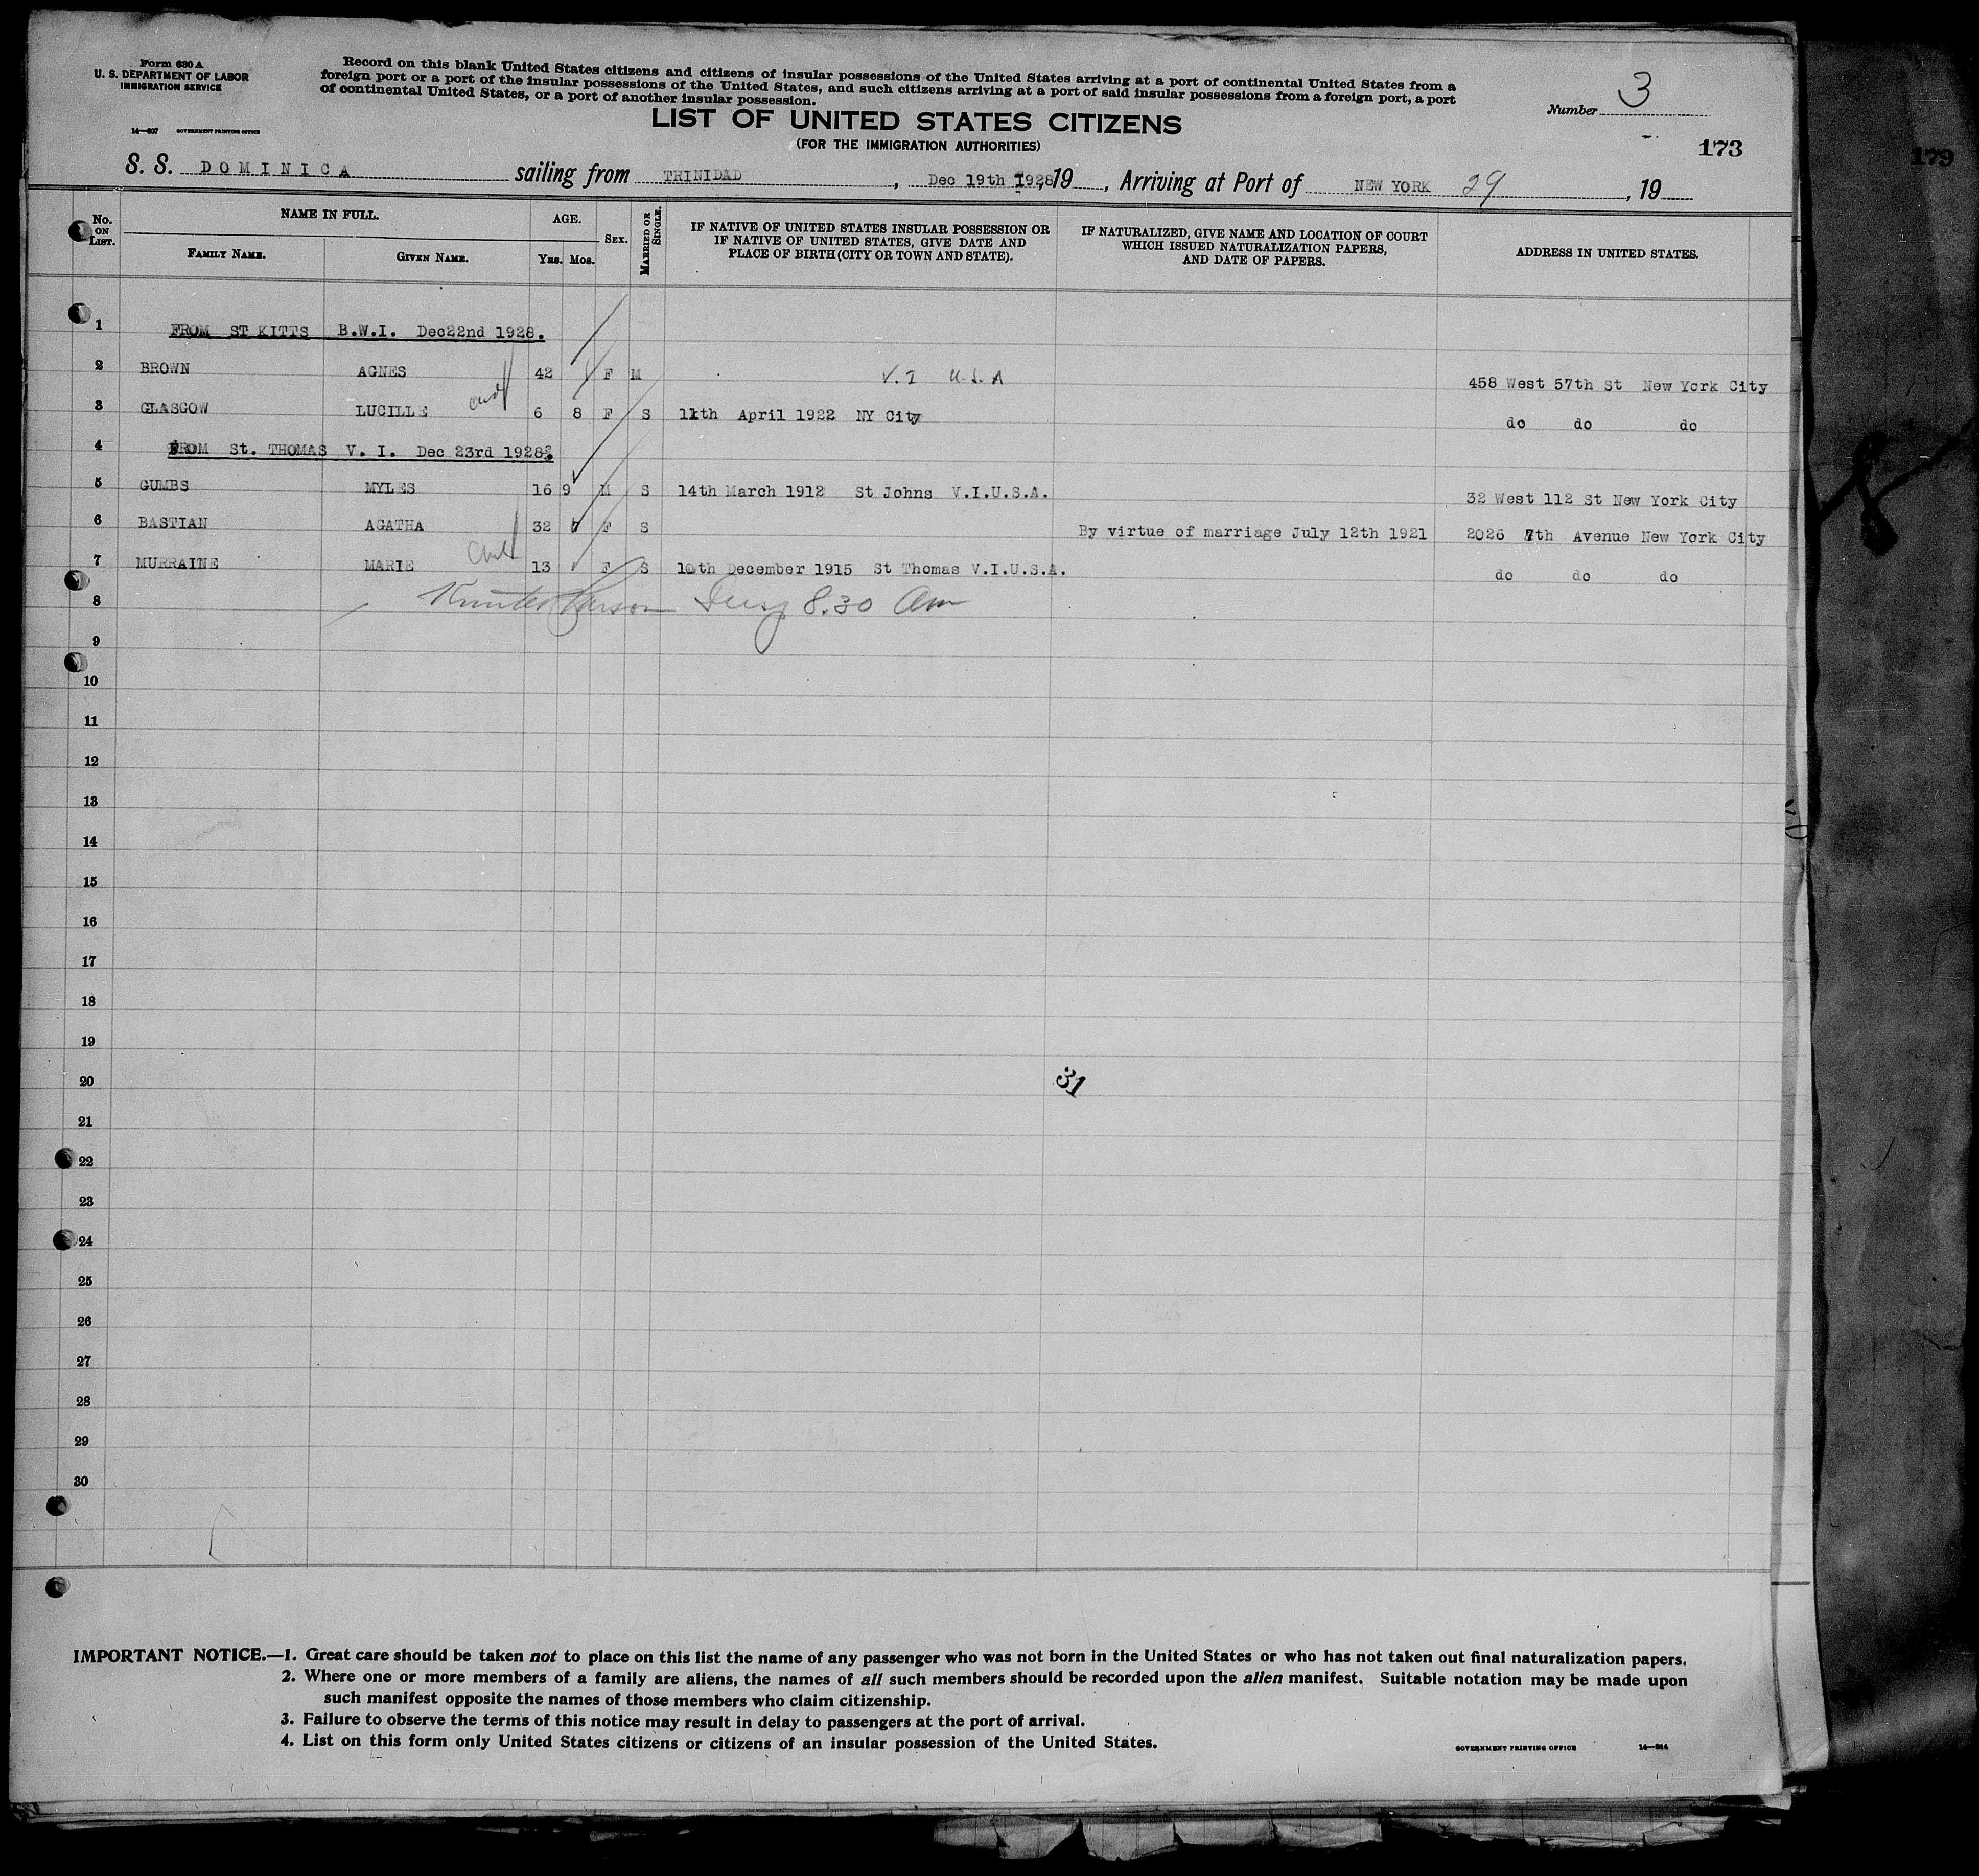 Form 630 A
U. S. DEPARTMENT OF LABOR
IMMIGRATION SERVICE
14—607 GOVERNMENT PRINTING OFFICE
Record on this blank United States citizens and citizens of insular possessions of the United States arriving at a port of continental United States from a
foreign port or a port of the insular possessions of the United States, and such citizens arriving at a port of said insular possessions from a foreign port, a port
of continental United States, or a port of another insular possession.
Number 3
LIST OF UNITED STATES CITIZENS
(FOR THE IMMIGRATION AUTHORITIES)
173
179
S. S. DOMINICA sailing from TRINIDAD, Dec 19th 1928, 19, Arriving at Port of NEW YORK 29, 19
No. ON LIST. NAME IN FULL. AGE. SEX. MARRIED OR SINGLE. IF NATIVE OF UNITED STATES INSULAR POSSESSION OR IF NATIVE OF UNITED STATES, GIVE DATE AND PLACE OF BIRTH (CITY OR TOWN AND STATE). IF NATURALIZED, GIVE NAME AND LOCATION OF COURT WHICH ISSUED NATURALIZATION PAPERS, AND DATE OF PAPERS. ADDRESS IN UNITED STATES.
FAMILY NAME. GIVEN NAME. YRS. MOS.
1 FROM ST KITTS B.W.I. Dec22nd 1928.
2 BROWN AGNES 42 F M V. I U.S.A 458 West 57th St New York City
3 GLASGOW LUCILLE and 6 8 F S 11th April 1922 NY City do do do
4 FROM St. THOMAS V. I. Dec 23rd 1928.
5 GUMBS MYLES 16 9 M S 14th March 1912 St Johns V.I.U.S.A. 32 West 112 St New York City
6 BASTIAN AGATHA 32 F S By virtue of marriage July 12th 1921 2026 7th Avenue New York City
7 MURRAINE MARIE 13 F S 10th December 1915 St Thomas V.I.U.S.A. do do do
8 8.30 Am
9
10
11
12
13
14
15
16
17
18
19
20
31
21
22
23
24
25
26
27
28
29
30
IMPORTANT NOTICE.—1. Great care should be taken not to place on this list the name of any passenger who was not born in the United States or who has not taken out final naturalization papers.
2. Where one or more members of a family are aliens, the names of all such members should be recorded upon the alien manifest. Suitable notation may be made upon
such manifest opposite the names of those members who claim citizenship.
3. Failure to observe the terms of this notice may result in delay to passengers at the port of arrival.
4. List on this form only United States citizens or citizens of an insular possession of the United States.
GOVERNMENT PRINTING OFFICE